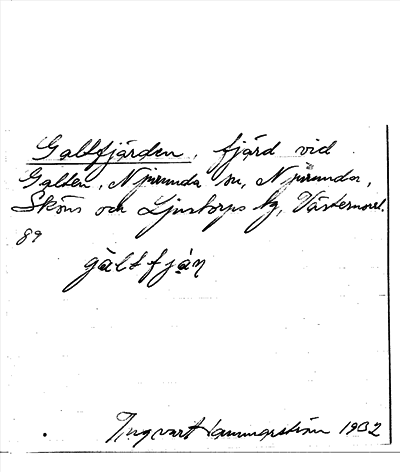 Galtfjärden, fjärd vid
Galten, Njurunda sn, Njurunda,
Sköns och Ljustorps tg, Västernorrl.
89
gàltfjàn
Ingvart Hammarström 1932